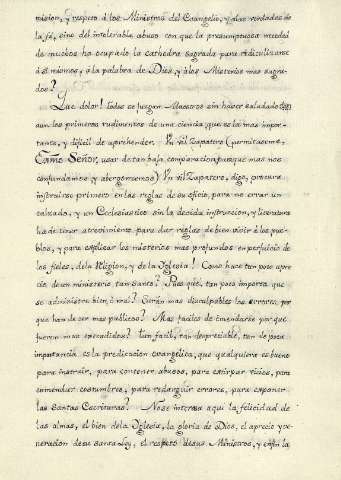 mision, y respeto á los Ministros del Evangelio, y á las verdades de
la fé, sino del intolerable abuso con que la presumptuosa necedad
de muchos ha ocupado la cathedra sagrada para ridiculizarse
á si mismos, y á la palabra de Dios, y á los Misterios mas sagra-
dos?
Que dolor! todos se juzgan Maestros sin haver saludado
aun los primeros rudimentos de una ciencia, que es la mas impor-
tante, y dificil de aprehender. Un vil Zapatero (permitaseme,
Exmo Señor, usar de tan baja comparacion para que mas nos
confundamos y abergonzemos) Un vil Zapatero, digo, procura
instruirse primero en las reglas de su oficio, para no errar un
calzado, y un Ecclesiastico sin la decida instruccion, y literatura
ha de tener atrevimiento para dar reglas de bien vivir á los pue-
blos, y para explicar los misterios mas profundos en perjuicio de
los fieles, de la Religion, y de la Yglesia! Como hace tan poco apre-
cio de un ministerio tan santo? Pues qué, tan poco importa que
se administre bien, ó mal? Serán mas disculpables los errores, por
que han de ser mas publicos? Mas faciles de enmendarse por que
fueron mas extendidos? Tan facil, tan despreciable, tan de poca
importancia es la predicacion evangelica, que qualquiera es bueno
para instruir, para contener abusos, para extirpar vicios, para
enmendar costumbres, para redarguir errores, para exponer
las Santas Escrituras? No se interesa aqui la felicidad de
las almas, el bien de la Yglesia, la gloria de Dios, el aprecio y ve-
neracion de su santa Ley, el respeto de sus Ministros, y enfin la